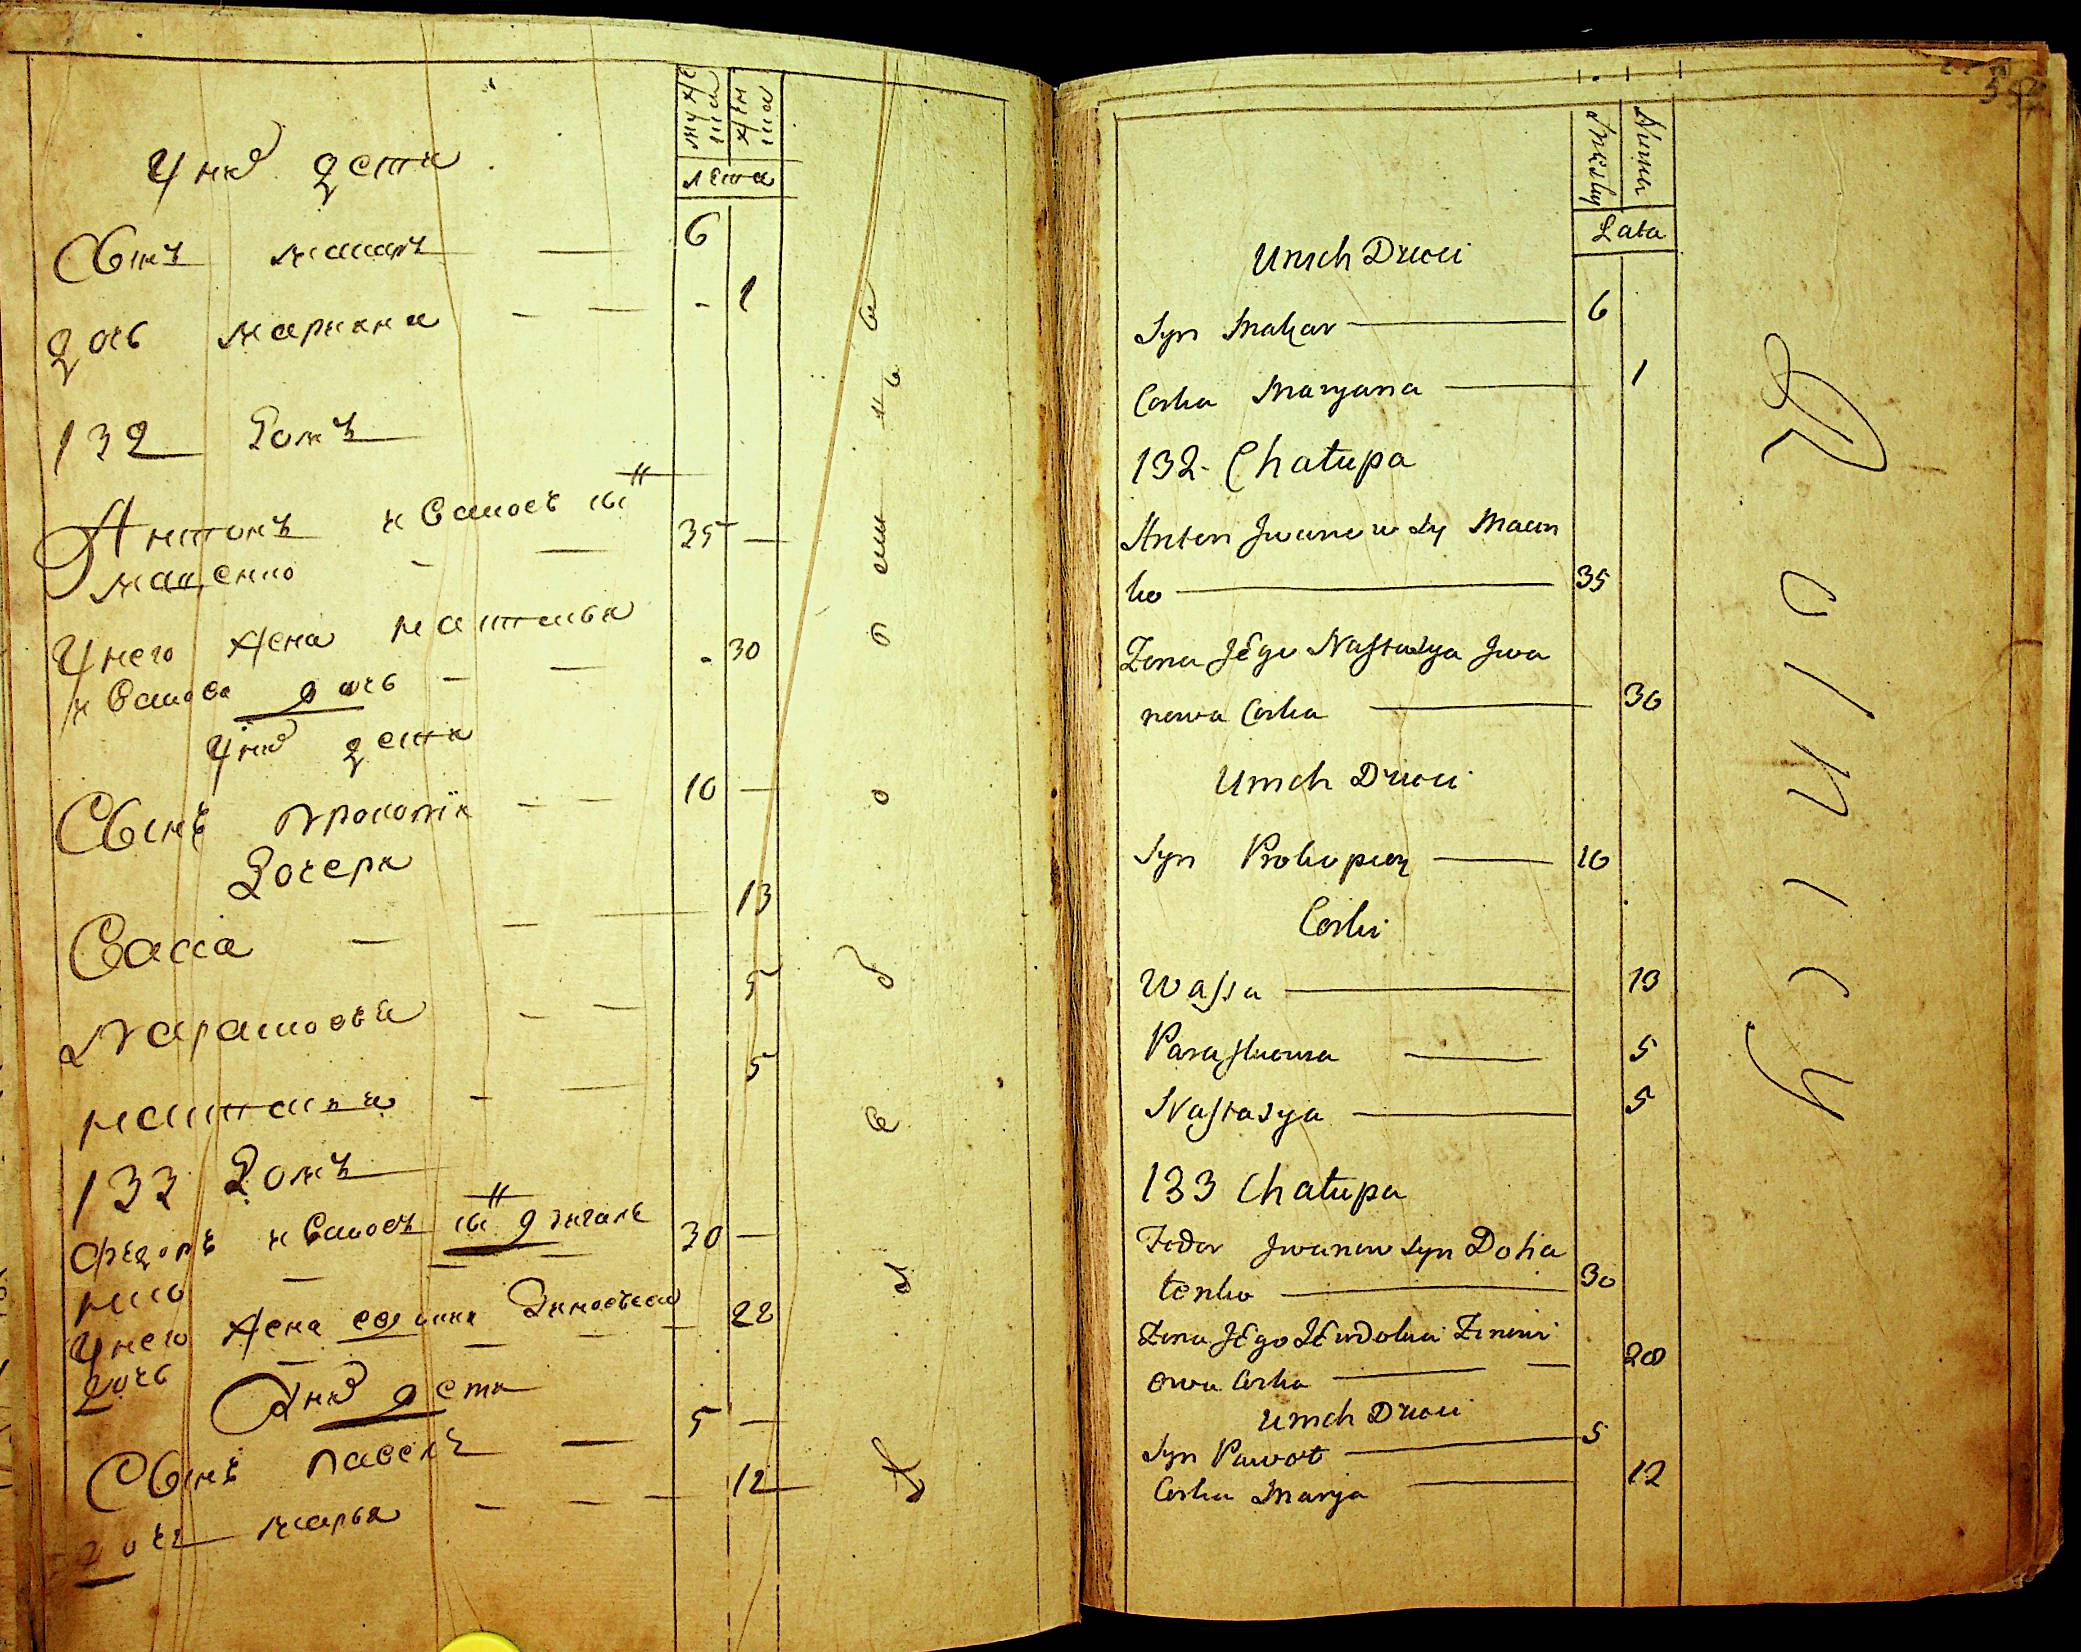 мужеска
женска
лета
У них дети
Сынъ макаръ 6
дочь марияна 1
132 Домъ
Антонъ иванов сын 35
маценко
У него жена насталья 30
иванова дочь
У них дети
Сынъ прокопий 10
Дочери
Васса 13
парасковья 5
насталия 5
133 Домъ
Федоръ ивановъ сын 30
У него жена евдокия Зиновьева 22
дочь
У них дети
Сынъ павелъ 5
дочь марья 12
хлебопашьца
Lata
Unich Dzieci
Syn Makar 6
Corka Maryana 1
132 Chatupa
Anton Iwanow Sy Macen
ko 35
Zona JEgo Nastasya Iwa
nowa Corka 30
Unich Dzieci
Syn Prokopiey 10
Corki
Wassa 13
Paraskowia 5
Nastasya 5
133 Chatupa
Fedor Iwanow Syn Doha
tenko 30
Zona JEgo JEwdokia Zinowi
owa Corka 20
Unich Dzieci
Syn Pawot 5
Corka Marya 12
Rolnicy